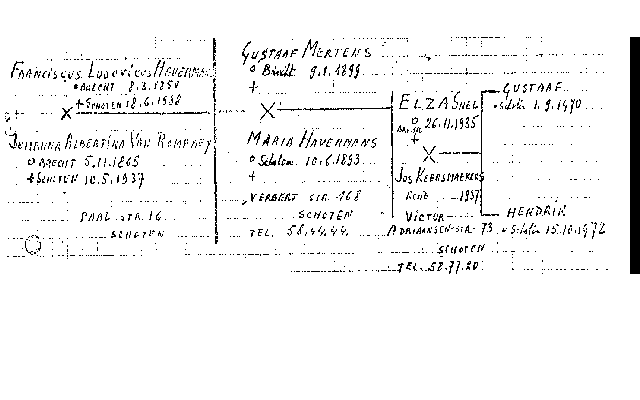 FRANCISCUS LUDOVICUS HAVERMANS
° BRECHT 8.3.1850
+ SCHOTEN 18.6.1938
X
JOHANNA ALBERTINA VAN ROMPAEY
° BRECHT 5.11.1865
+ SCHOTEN 10.5.1937
PAAL STR. 16
SCHOTEN
GUSTAAF MERTENS
° 9.1.1899
+
X
MARIA HAVERMANS
° Schoten 10.6.1893
+
VERBERT STR. 168
SCHOTEN
TEL. 58.44.44.
ELZA SNEL
° 26.11.1935
+
X
JOS KEERSMAEKERS
1937
VICTOR
ADRIAANSEN STR. 73
SCHOTEN
TEL. 58.77.20
GUSTAAF
1.9.1970
HENDRIK
° Schoten 15.10.1972